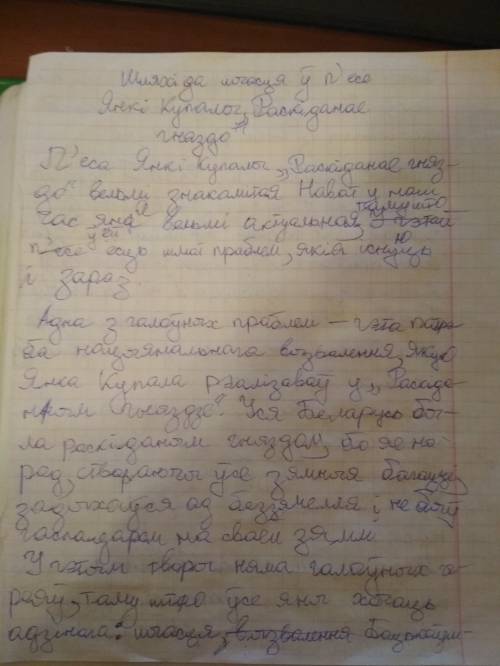 Шляхі да шчасця ў п'есе
Янкі Купалы „Раскіданае
гняздо“
П'еса Янкі Купалы „Раскіданае гняз-
до“ вельмі знакамітая. Нават у наш
час яна вельмі актуальная, таму што
у ёй
п'есе ёсць шмат праблем, якія існуюць
і зараз.
Адна з галоўных праблем – гэта патрэ-
ба нацыянальнага вызвалення, якую
Янка Купала рэалізаваў у „Раскіда-
ным гняздзе“. Уся Беларусь бы-
ла раскіданым гняздом, бо яе на-
род, ствараючы ўсе зямныя
задыхаўся ад беззямелля і не быў
гаспадаром на сваёй зямлі.
У гэтым творы няма галоўных ге-
рояў, таму што ўсе яны хочуць
адзінага: шчасця, вызвалення